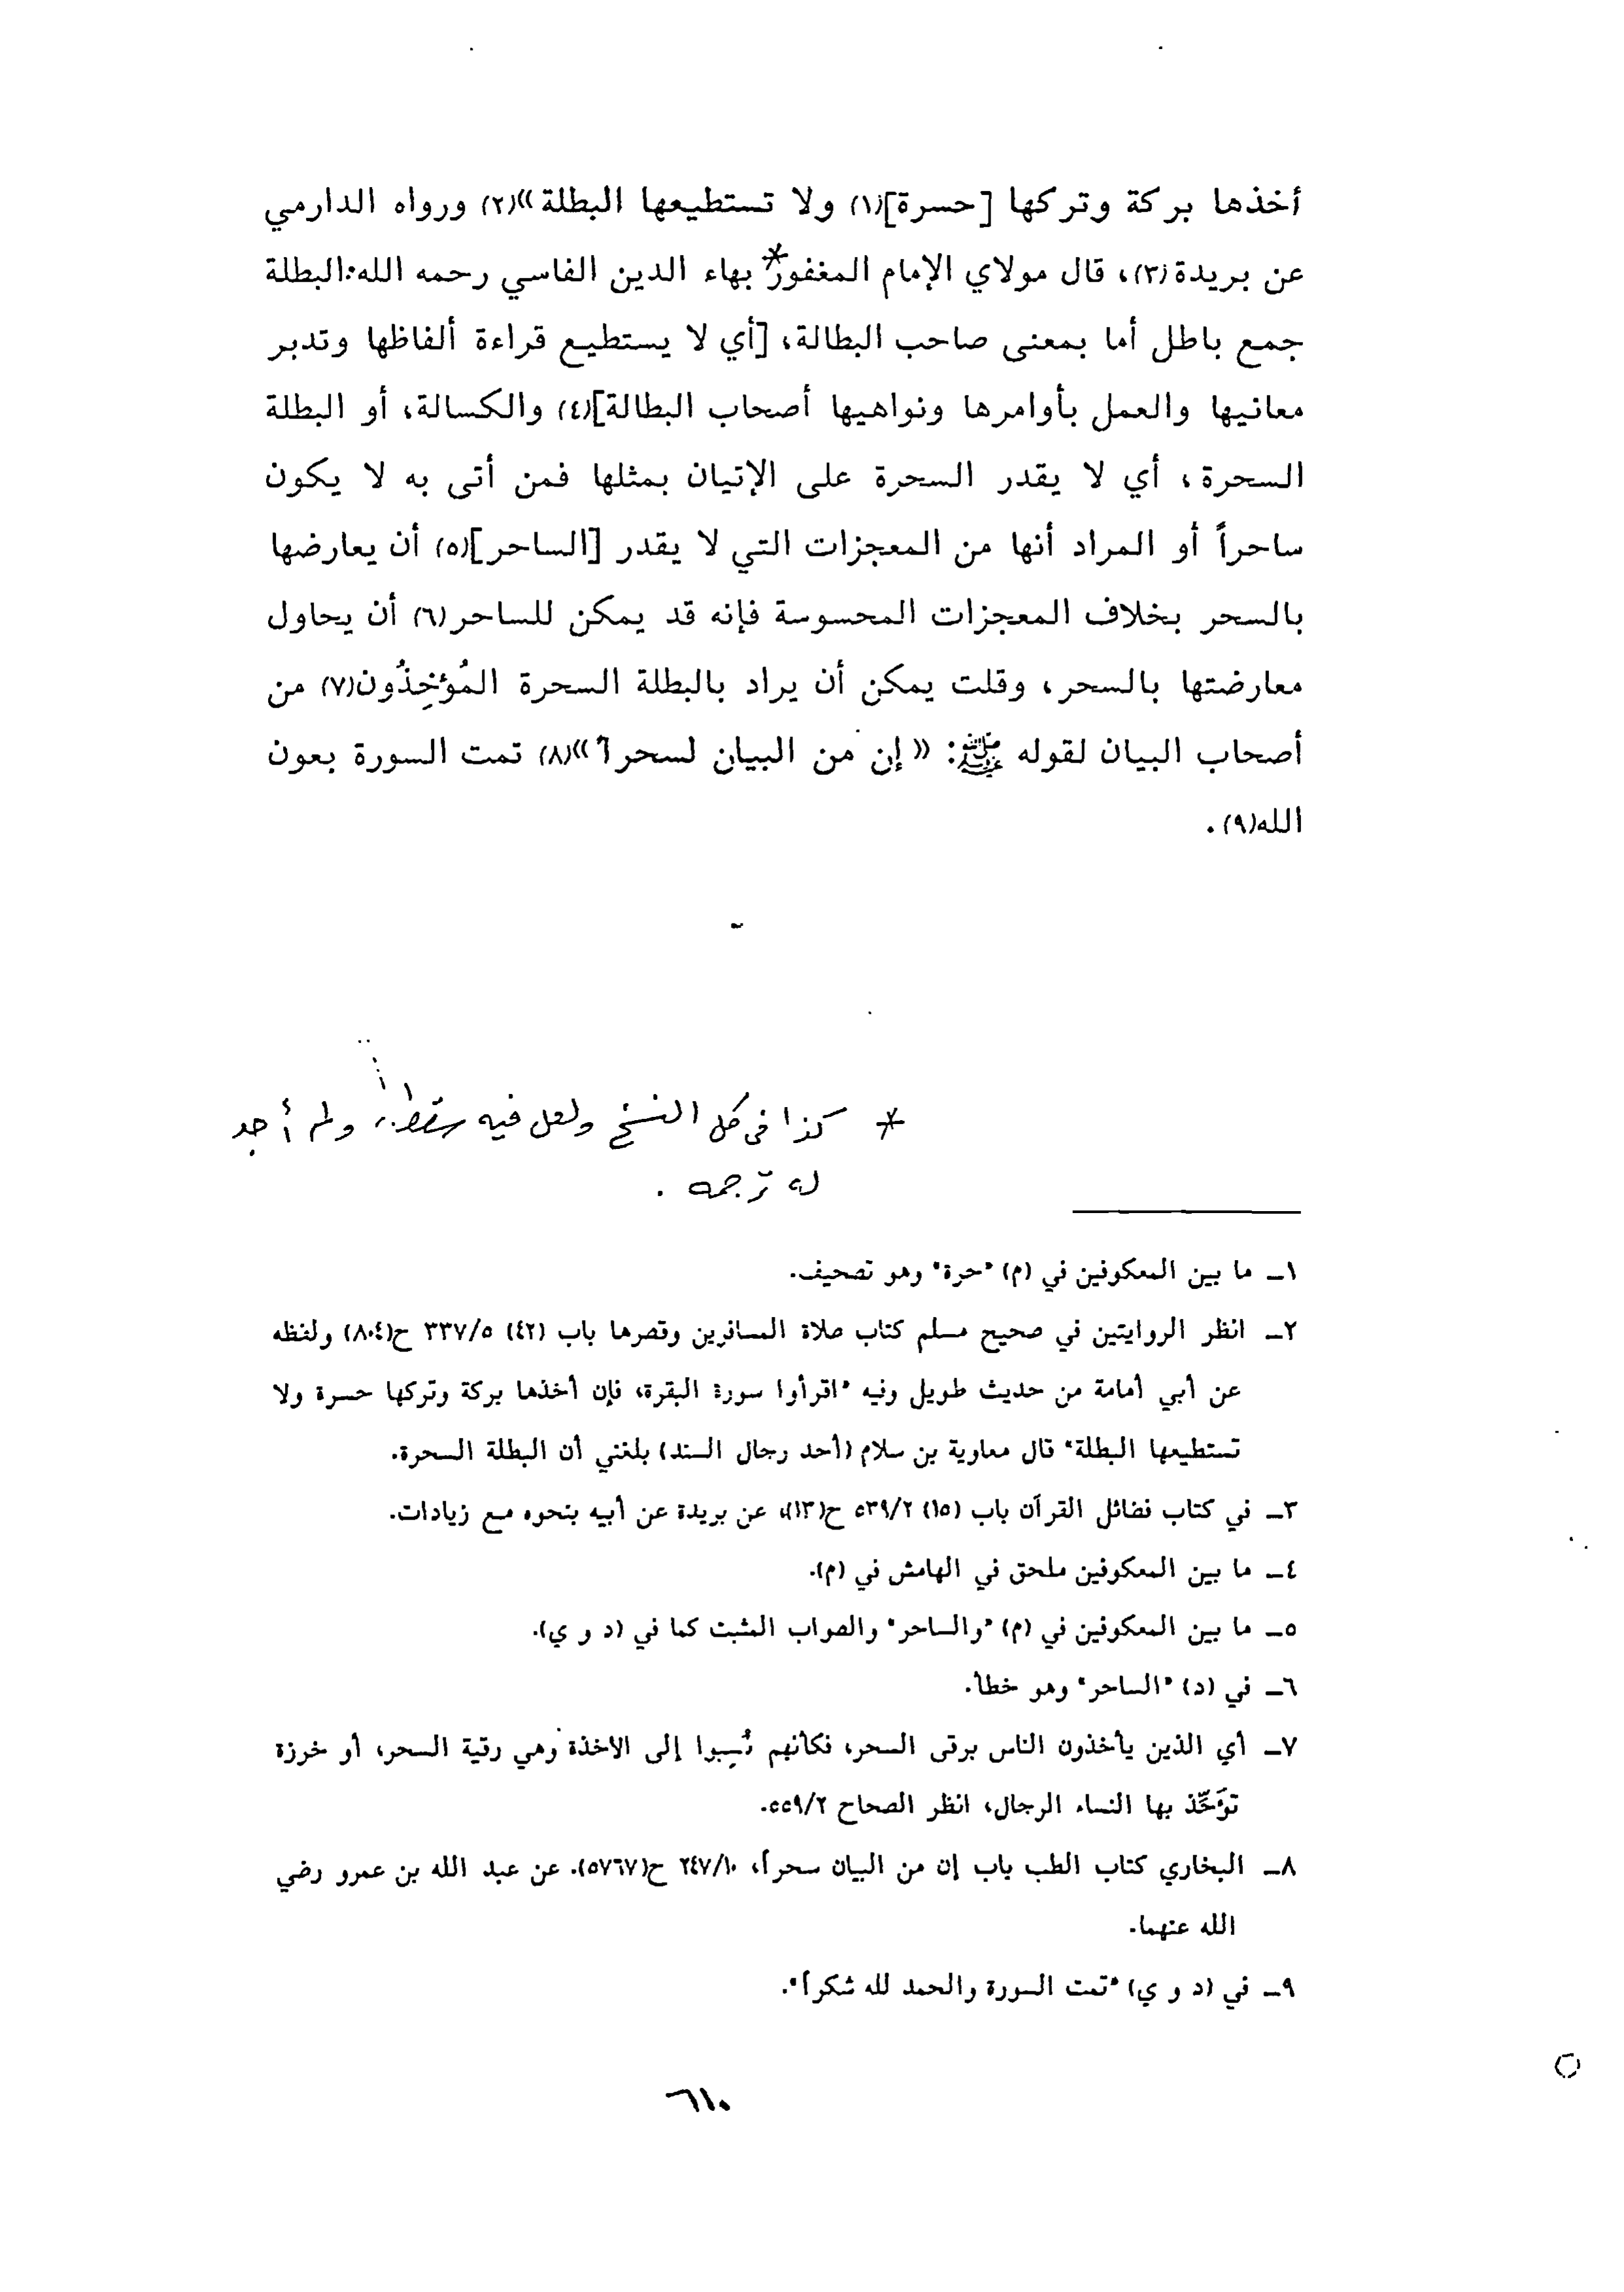 أخذها بركة وتركها [حسرة](١) ولا تستطيعها البطلة»(٢) ورواه الدارمي
عن بريدة(٣)، قال مولاي الإمام المغفور* بهاء الدين الفاسي رحمه الله: البطلة
جمع باطل أما بمعنى صاحب البطالة، [أي لا يستطيع قراءة ألفاظها وتدبر
معانيها والعمل بأوامرها ونواهيها أصحاب البطالة](٤) والكسالة، أو البطلة
السحرة، أي لا يقدر السحرة على الإتيان بمثلها فمن أتى به لا يكون
ساحراً أو المراد أنها من المعجزات التي لا يقدر [الساحر](٥) أن يعارضها
بالسحر بخلاف المعجزات المحسوسة فإنه قد يمكن للساحر(٦) أن يحاول
معارضتها بالسحر، وقلت يمكن أن يراد بالبطلة السحرة المُؤخِذُون(٧) من
أصحاب البيان لقوله ﷺ: «إن من البيان لسحراً»(٨) تمت السورة بعون
الله(٩).
* كذا في كل النسخ ولعل فيه سقطا، ولم أجد
له ترجمه .
١ـ ما بين المعكوفين في (م) "حرة" وهو تصحيف.
٢ـ انظر الروايتين في صحيح مسلم كتاب صلاة المسافرين وقصرها باب (٤٢) ٣٣٧/٥ ح(٨٠٤) ولفظه
عن أبي أمامة من حديث طويل وفيه "اقرأوا سورة البقرة، فإن أخذها بركة وتركها حسرة ولا
تستطيعها البطلة" قال معاوية بن سلام (أحد رجال السند) بلغني أن البطلة السحرة.
٣ـ في كتاب فضائل القرآن باب (١٥) ٥٣٩/٢ ح(١٣)، عن بريدة عن أبيه بنحوه مع زيادات.
٤ـ ما بين المعكوفين ملحق في الهامش في (م).
٥ـ ما بين المعكوفين في (م) "والساحر" والصواب المثبت كما في (د و ي).
٦ـ في (د) "الساحر" وهو خطأ.
٧ـ أي الذين يأخذون الناس برقى السحر، فكأنهم نُسِبوا إلى الأخذة وهي رقية السحر، أو خرزة
تؤَخِّذ بها النساء الرجال، انظر الصحاح ٥٥٩/٢.
٨ـ البخاري كتاب الطب باب إن من البيان سحراً، ٢٤٧/١٠ ح(٥٧٦٧). عن عبد الله بن عمرو رضي
الله عنهما.
٩ـ في (د و ي) "تمت السورة والحمد لله شكراً".
٦١٠